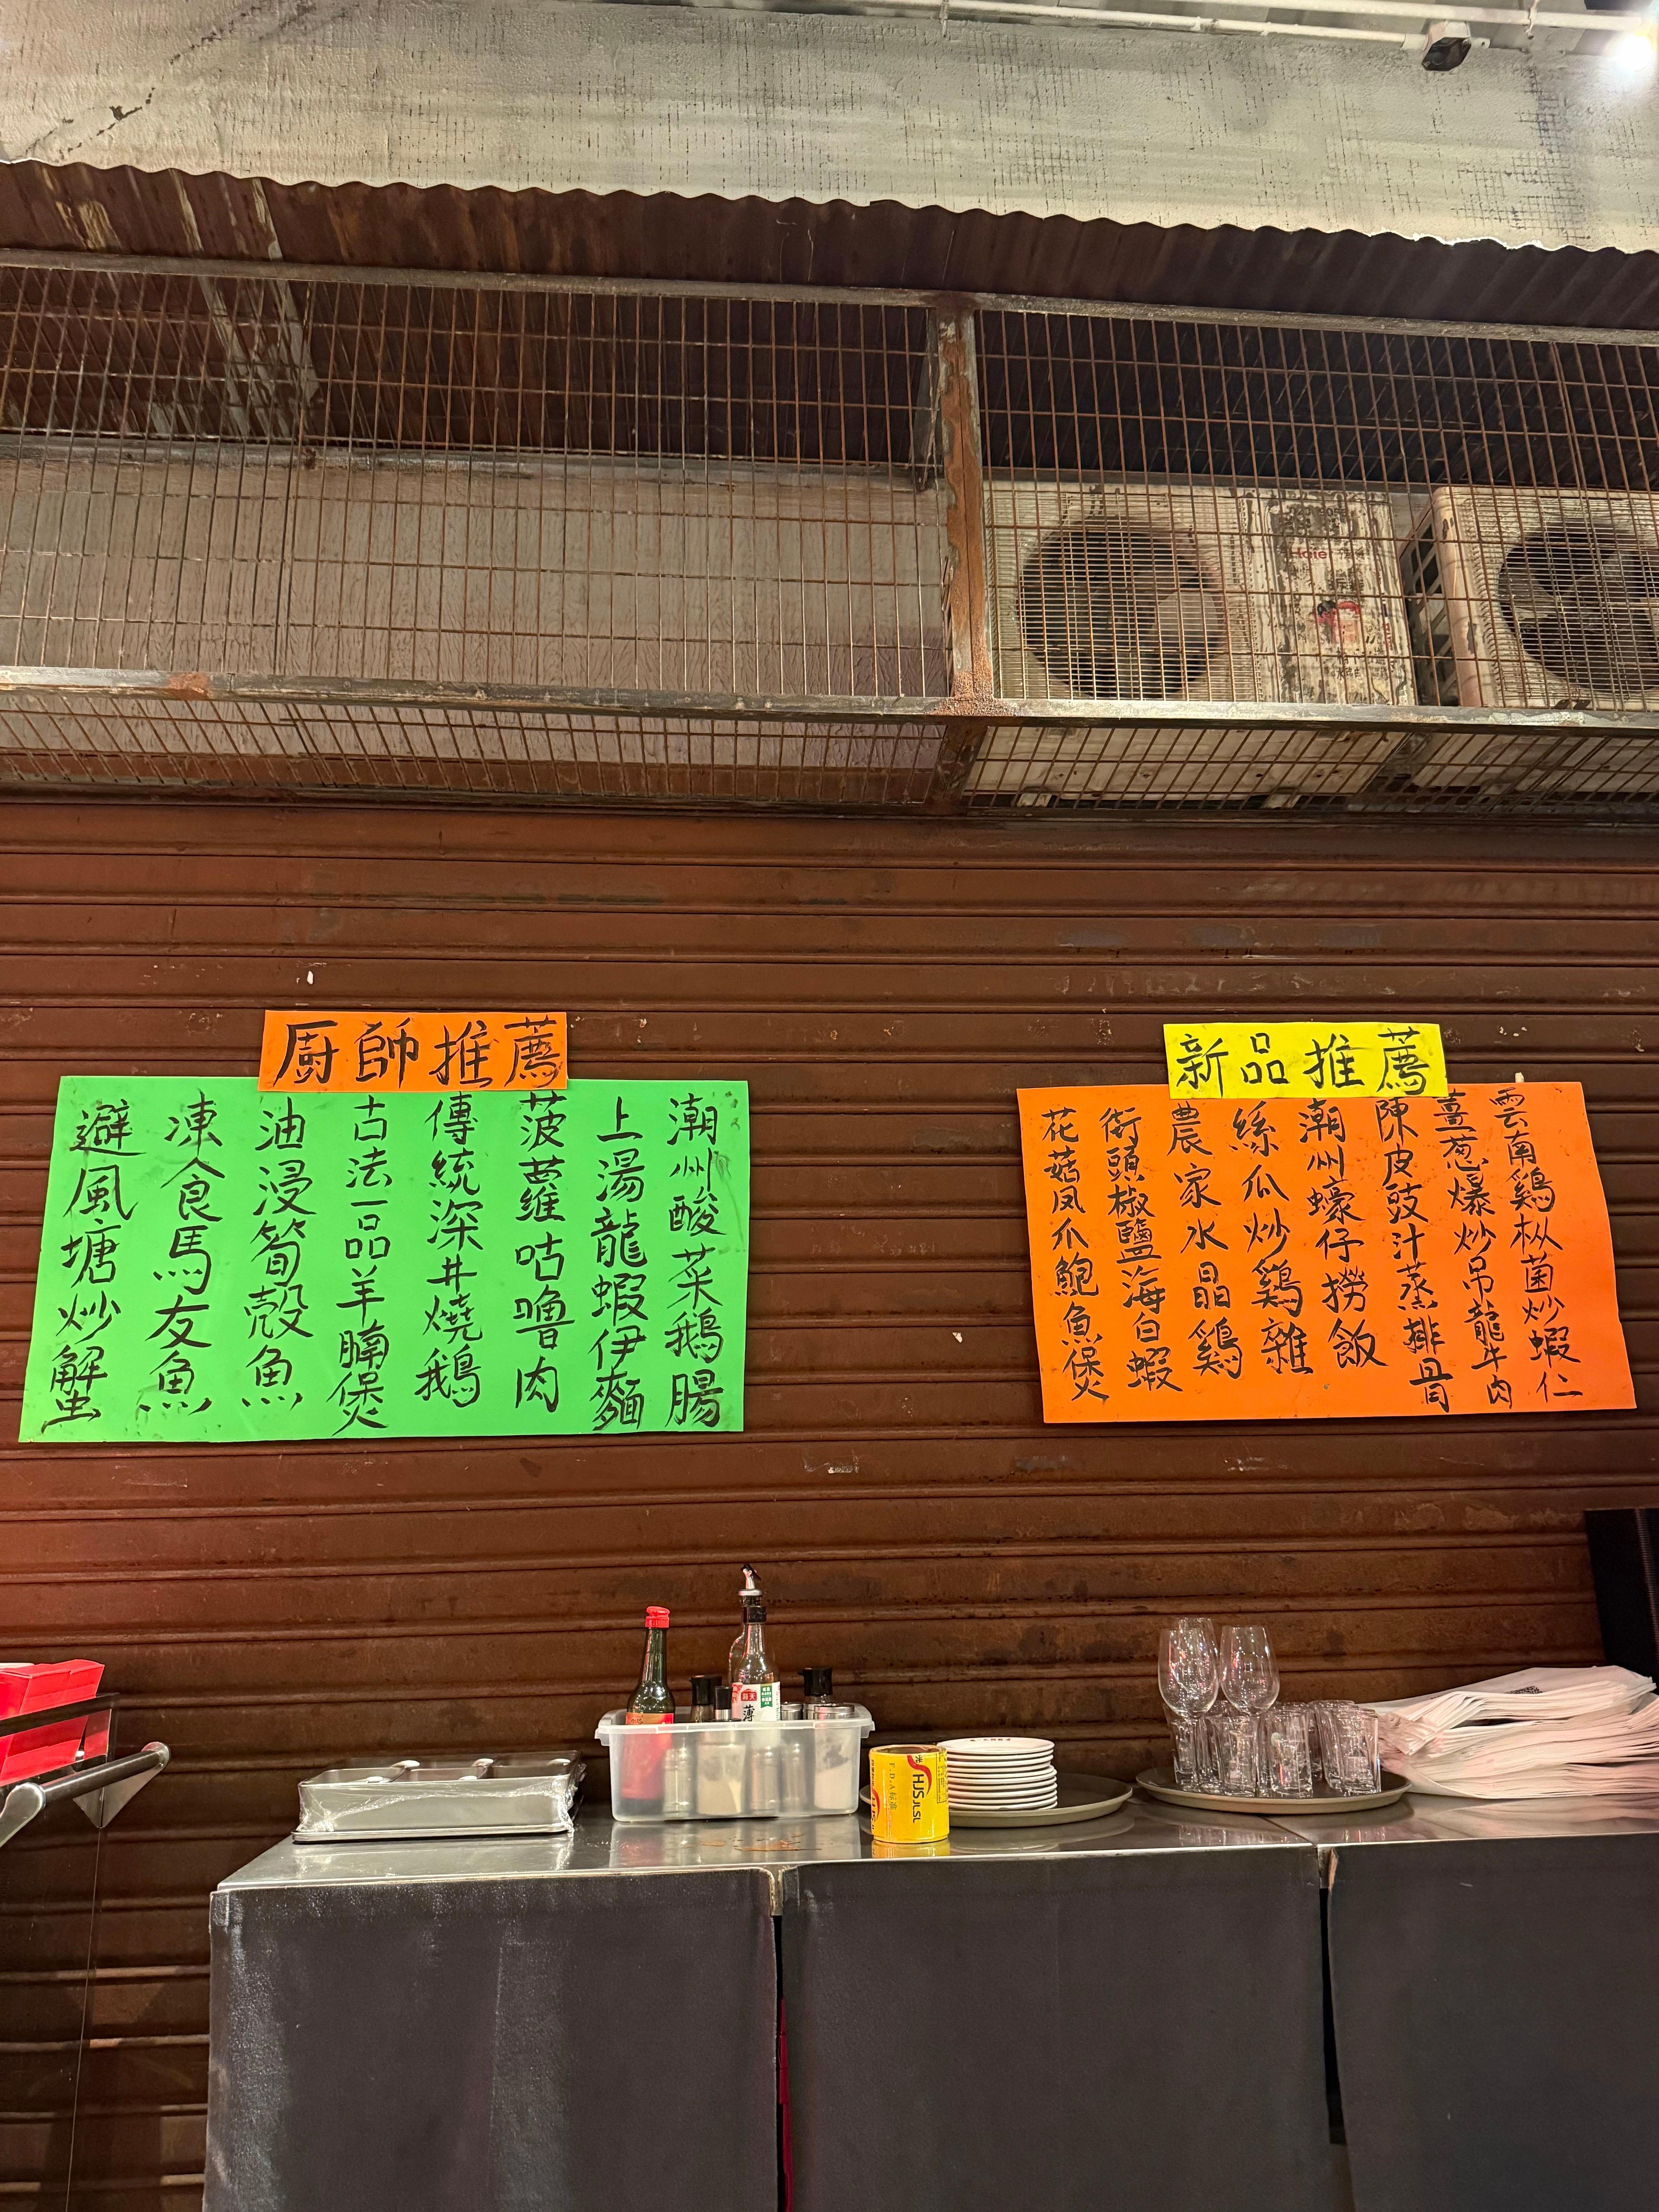 廚師推薦
潮州酸菜鵝腸
上湯龍蝦伊麵
菠蘿咕嚕肉
傳統深井燒鵝
古法一品羊腩煲
油浸筍殼魚
凍食馬友魚
避風塘炒蟹
新品推薦
雲南鷄枞菌炒蝦仁
薑葱爆炒吊龍牛肉
陳皮豉汁蒸排骨
潮州蠔仔撈飯
絲瓜炒鷄雜
農家水晶鷄
街頭椒鹽海白蝦
花菇凤爪鮑魚煲
Haier
HJS JLSL
F.D.A标准